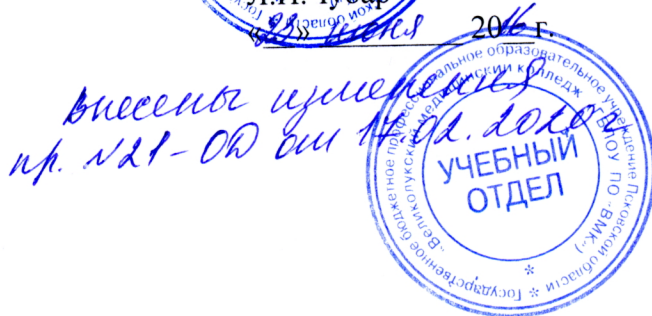 Л.Н. Чубар
«29» июня 2016 г.
Внесены изменения
пр. №21-ОД от 17.02.2020г
Государственное бюджетное профессиональное образовательное учреждение Псковской области *
«Великолукский медицинский колледж» (ГБПОУ ПО «ВМК») *
УЧЕБНЫЙ
ОТДЕЛ